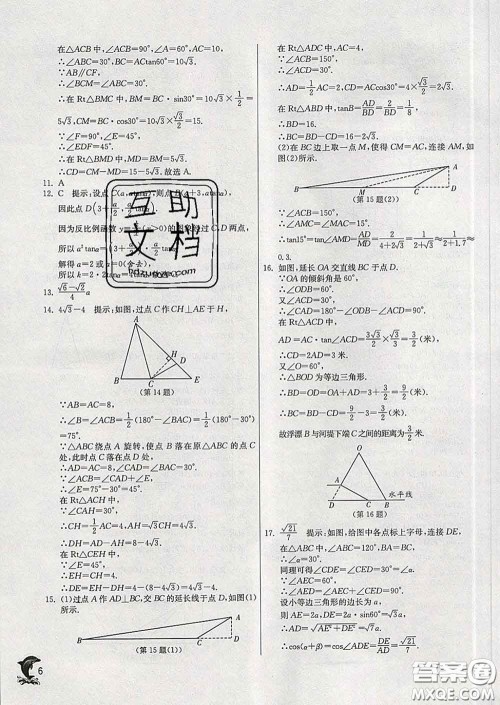 在△ACB中,∠ACB=90°,∠A=60°,AC=10,
∴∠ABC=30°,BC=ACtan60°=10√3.
∵AB∥CF,
∴∠BCM=∠ABC=30°.
∴在Rt△BMC中,BM=BC·sin30°=10√3×1/2=
5√3,CM=BC·cos30°=10√3×√3/2=15.
∵∠F=90°,∠E=45°,
∴∠EDF=45°.
∴在Rt△BMD中,MD=BM=5√3.
∴CD=CM-MD=15-5√3.故选A.
11. A
12. C 提示:设点
因此点D
因为反比例函数
所以
解得a=2或a=0(舍去),
13. (√6-√2)/4 a
14. 4√3-4 提示:如图,过点C作CH⊥AE于H,
A
H
D
B
C
E
(第14题)
∵AB=AC=8,
∴∠B=∠ACB=1/2(180°-∠BAC)=1/2(180°-30°)
=75°.
∵△ABC绕点A旋转,使点B落在原△ABC的点C
处,此时点C落在点D处,
∴AD=AB=8,∠CAD=∠BAC=30°.
∵∠ACB=∠CAD+∠E,
∴∠E=75°-30°=45°.
在Rt△ACH中,
∴CH=1/2AC=4,AH=√3CH=4√3.
∴DH=AD-AH=8-4√3.
在Rt△CEH中,
∵∠E=45°,
∴EH=CH=4.
∴DE=EH-DH=4-(8-4√3)=4√3-4.
15. (1)过点A作AD⊥BC,交BC的延长线于点D,如图(1)
所示.
A
B
C
D
(第15题(1))
在Rt△ADC中,AC=4,
∵∠ACB=150°,
∴∠ACD=30°.
∴AD=1/2AC=2,CD=ACcos30°=4×√3/2=2√3.
在Rt△ABD中,tanB=AD/BD=2/BD=1/8,
∴BD=16.
∴BC=BD-CD=16-2√3.
(2)在BC边上取一点M,使得CM=AC,连接AM,如
图(2)所示.
A
B
M
C
D
(第15题(2))
∵∠ACB=150°,
∴∠AMC=∠MAC=15°.
∴tan15°=AD/MD=2/(4+2√3)=1/(2+√3)≈1/(2+1.7)≈
0.3.
16. 如图,延长OA交直线BC于点D.
∵OA的倾斜角是60°,
∴∠ODB=60°.
∵∠ACD=30°,
∴∠CAD=180°-∠ODB-∠ACD=90°.
在Rt△ACD中,
AD=AC·tan∠ACD=3√3/2×√3/3=3/2(米).
∴CD=2AD=3米.
∴△BOD是等边三角形.
∴BD=OD=OA+AD=3+3/2=9/2(米).
∴BC=BD-CD=9/2-3=3/2(米).
故浮漂B与河堤下端C之间的距离为3/2米.
O
A
D
C
B
水平线
(第16题)
17. √21/7 提示:如图,给图中各点标上字母,连接DE,
在△ABC中,∠ABC=120°,BA=BC,
∴∠α=30°.
同理可得∠CDE=∠CED=30°=∠α.
∵∠AEC=60°,
∴∠AED=∠AEC+∠CED=90°.
设小等边三角形的边长为a,
则AE=2a,DE=2a·sin60°=√3a.
∴AD=√(AE²+DE²)=√7a.
∴cos(α+β)=cos∠ADE=DE/AD=√21/7.
6
互助文档
hdzuoye.com
答案圈
MXQE.COM